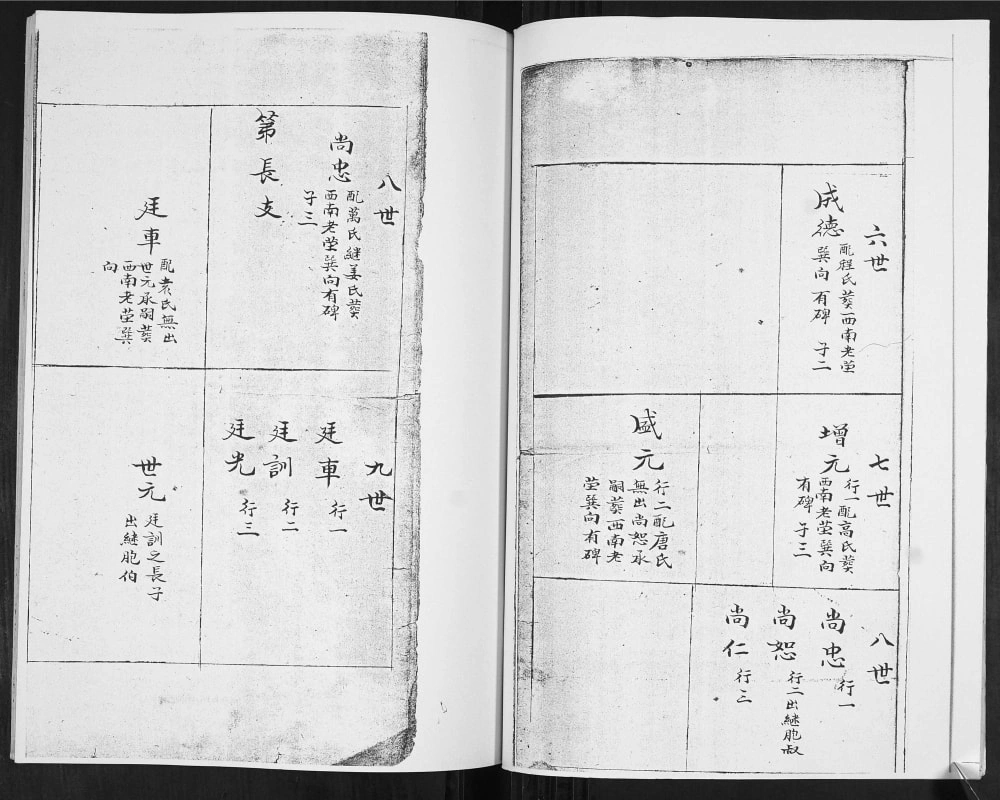 六世
成德
配程氏葬西南老茔
巽向有碑 子二
七世
增元
行一配高氏葬
西南老茔巽向
有碑 子三
盛元
行二配唐氏
無出尚恕承
嗣葬西南老
茔巽向有碑
八世
尚忠 行一
尚恕 行二出継胞叔
尚仁 行三
八世
尚忠
配萬氏継姜氏葬
西南老茔巽向有碑
子三
第長支
廷車
配袁氏無出
世元承嗣葬
西南老茔巽
向
九世
廷車 行一
廷訓 行二
廷光 行三
世元
廷訓之長子
出継胞伯